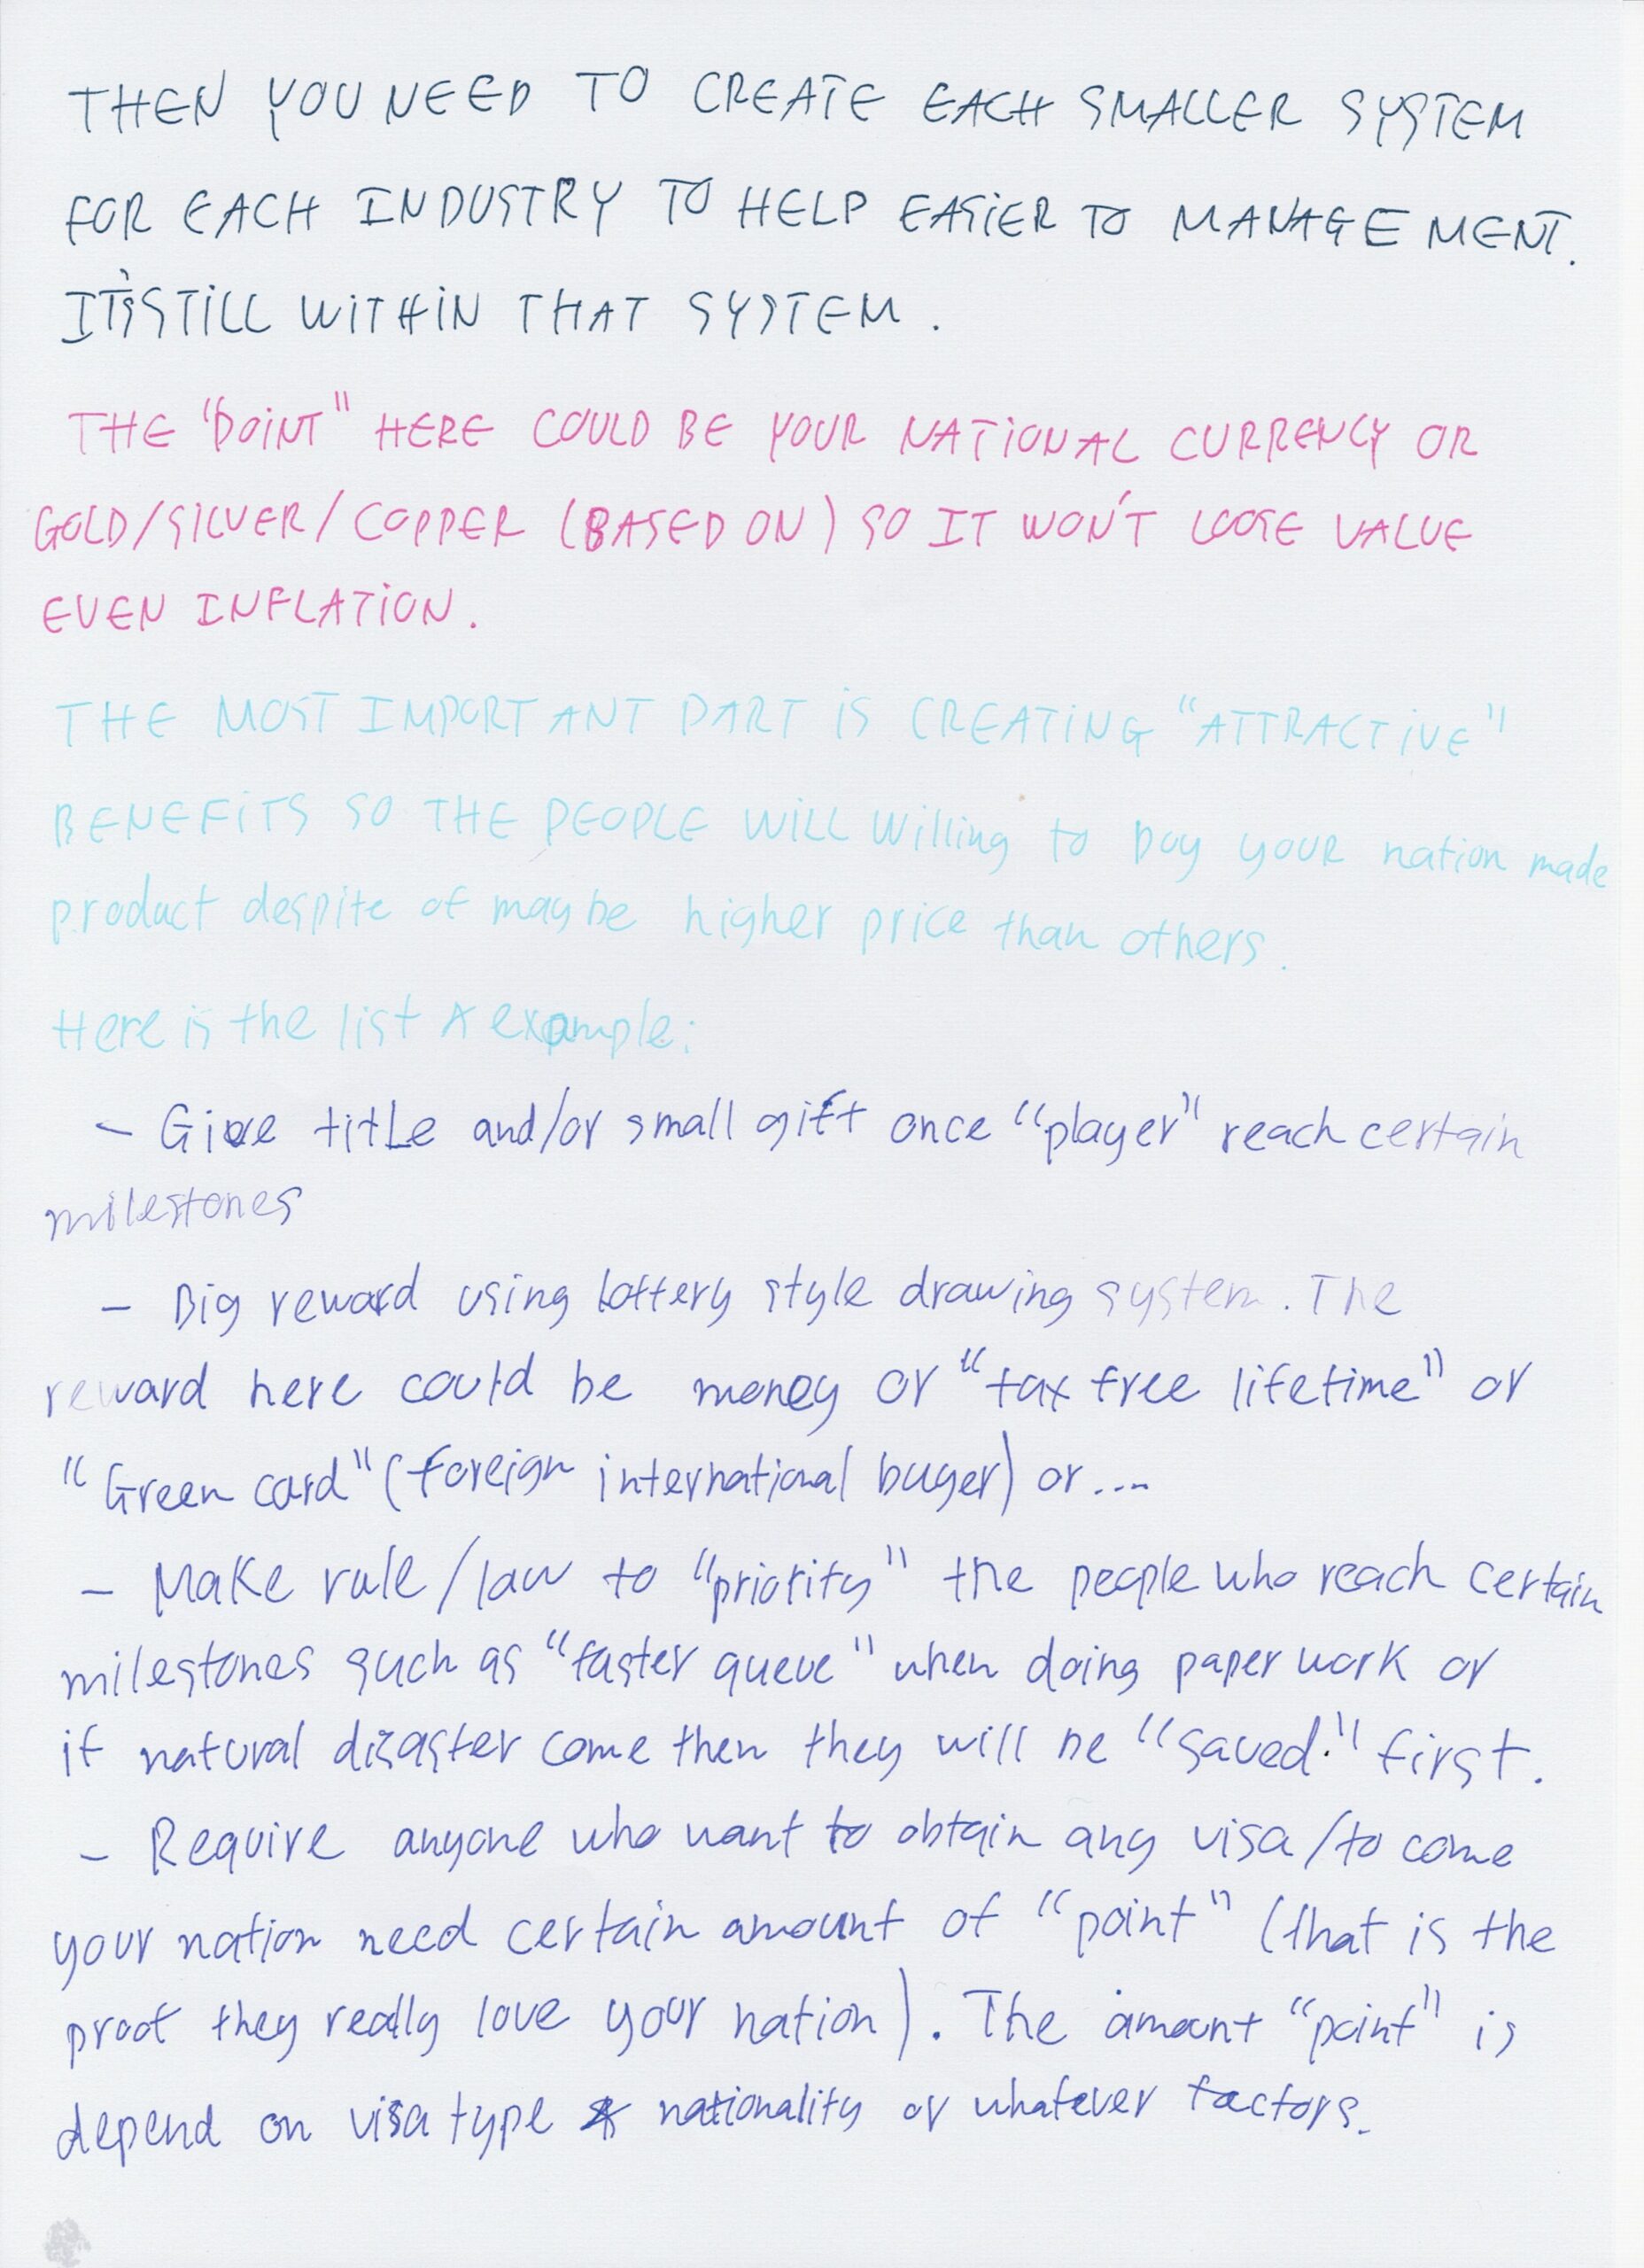 THEN YOU NEED TO CREATE EACH SMALLER SYSTEM
FOR EACH INDUSTRY TO HELP EASIER TO MANAGEMENT.
IT'S STILL WITHIN THAT SYSTEM.
THE "POINT" HERE COULD BE YOUR NATIONAL CURRENCY OR
GOLD/SILVER/COPPER (BASED ON) SO IT WON'T LOOSE VALUE
EVEN INFLATION.
THE MOST IMPORTANT PART IS CREATING "ATTRACTIVE"
BENEFITS SO THE PEOPLE WILL Willing to buy your nation made
product despite of maybe higher price than others.
Here is the list & example:
- Give title and/or small gift once "player" reach certain
milestones
- Big reward using lottery style drawing system. The
reward here could be money or "tax free lifetime" or
"Green card" (foreign international buyer) or...
- Make rule/law to "priority" the people who reach certain
milestones such as "faster queue" when doing paper work or
if natural disaster come then they will be "saved." first.
- Require anyone who want to obtain any visa/to come
your nation need certain amount of "point" (that is the
proof they really love your nation). The amount "point" is
depend on visa type & nationality or whatever factors.